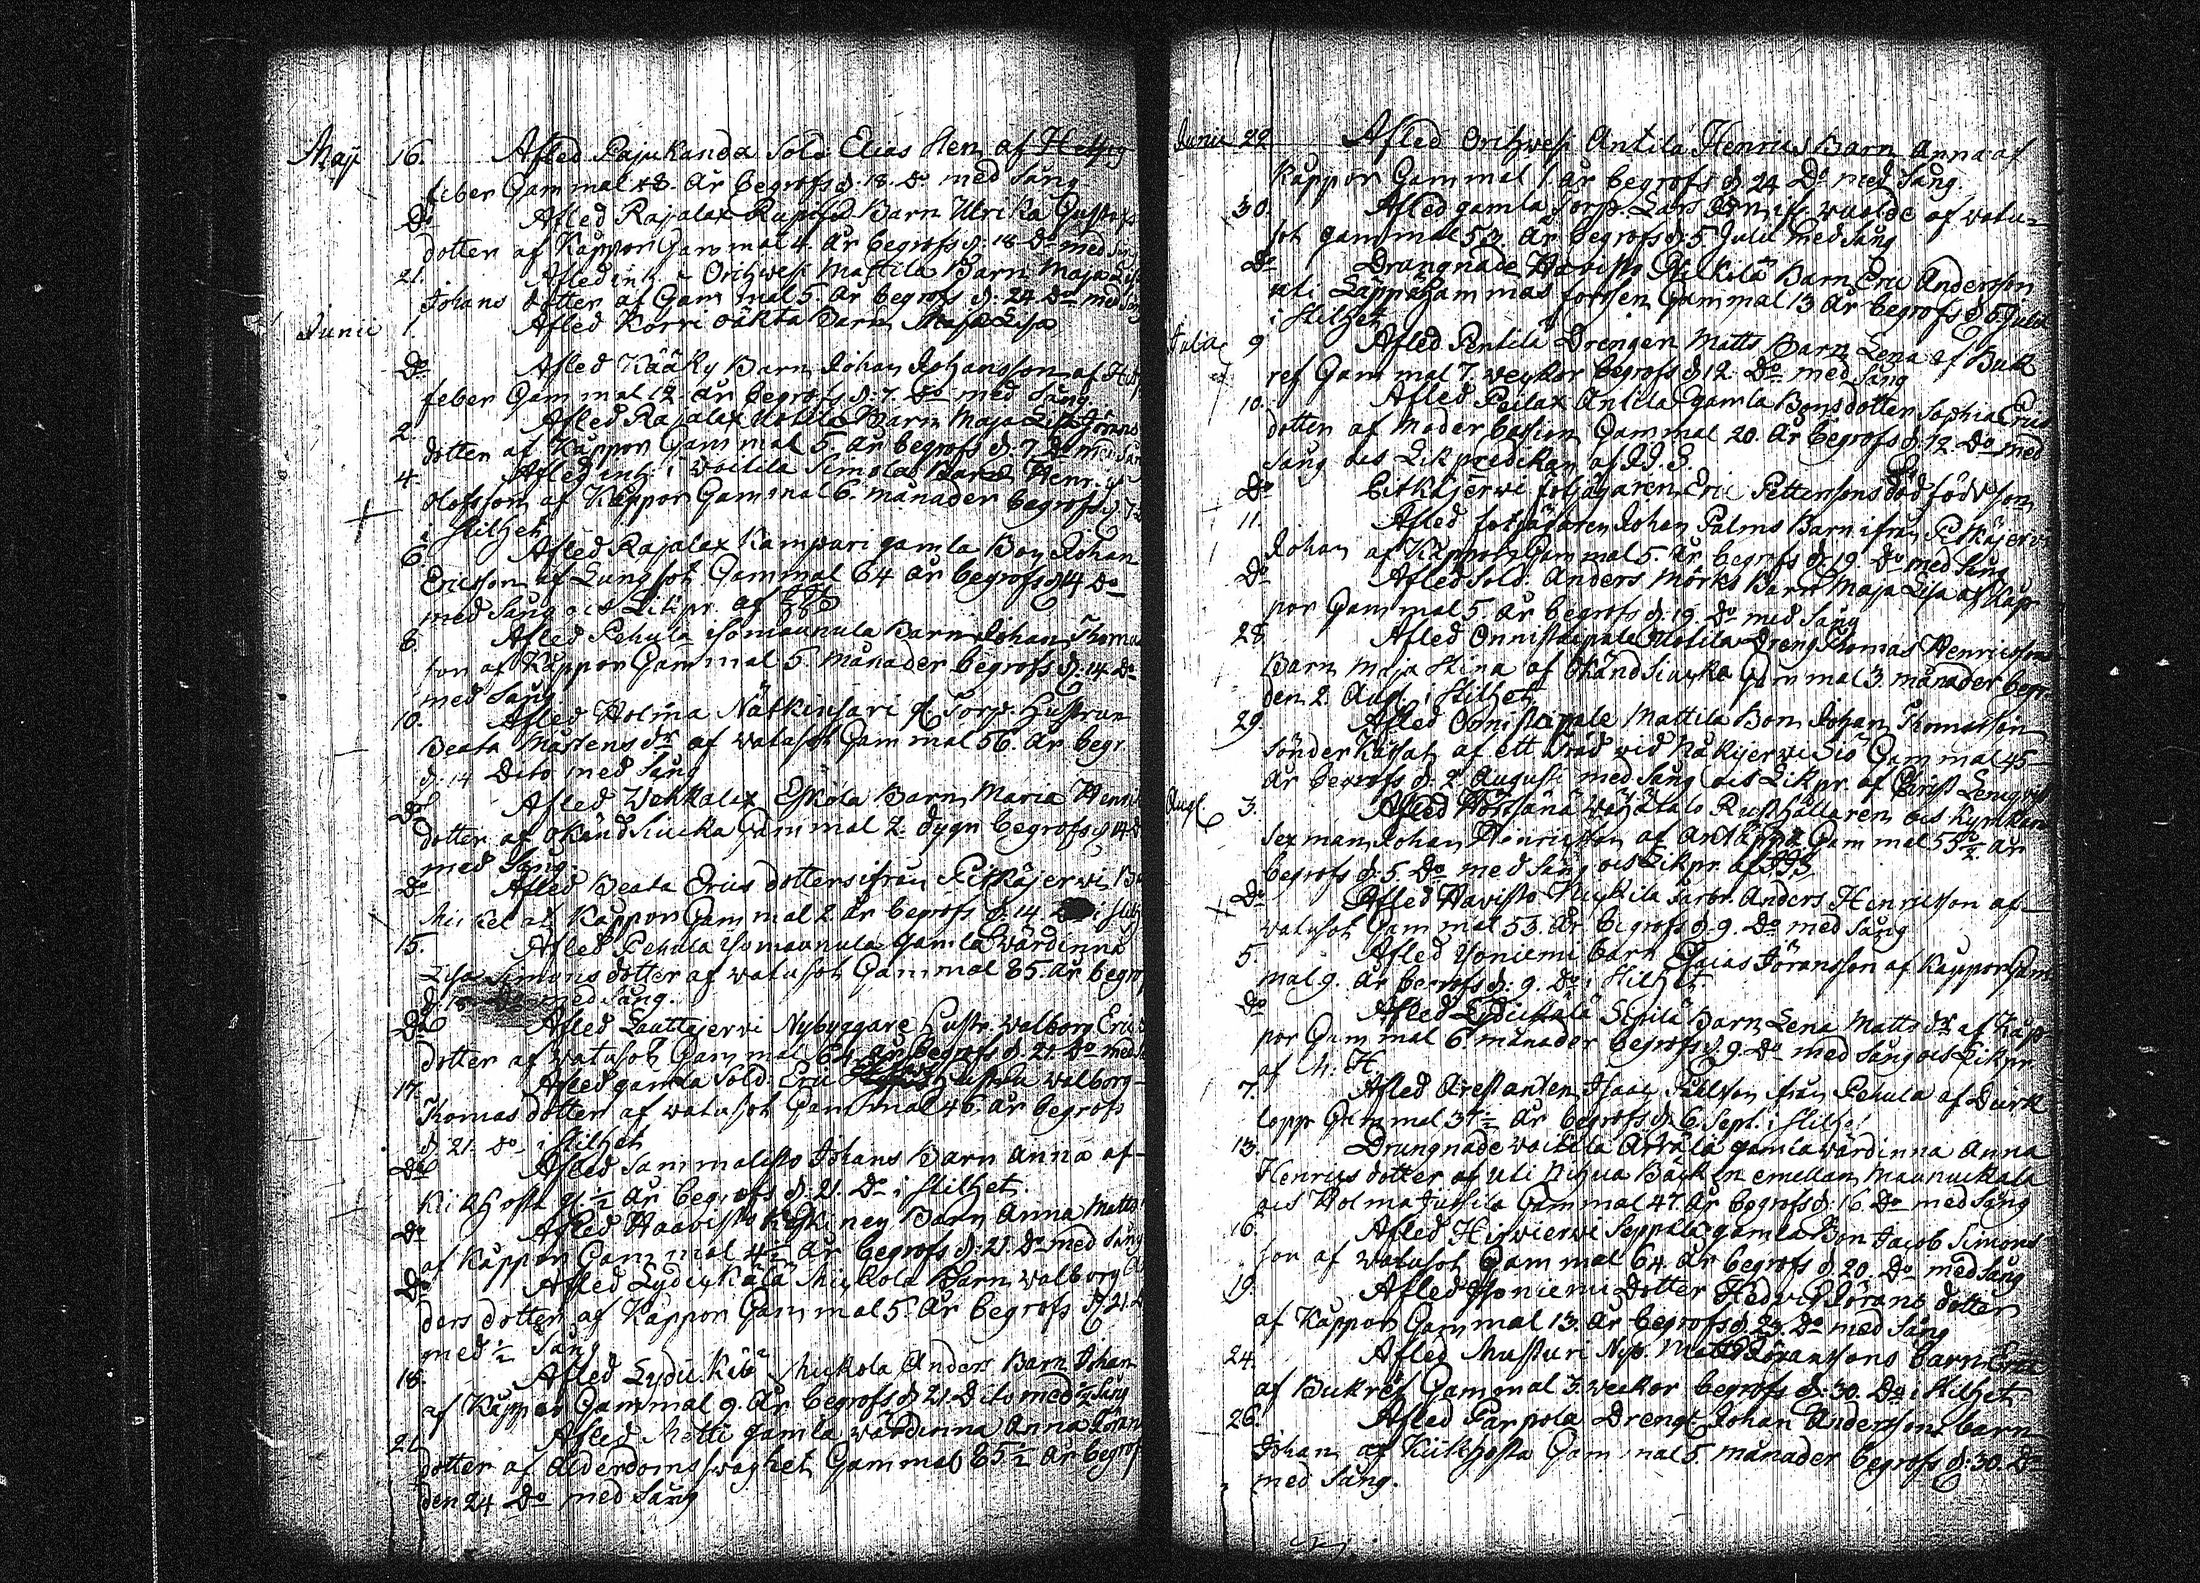 Maji 16. Afled Pajukanda Sold. Elias Hen af Hetsig
feber Gammal 48. år begrofs d. 18. Do med Sång
Do Afled Rajalax Barn Ulrika Gustafs
dotter af Kåppor Gammal 4. år begrofs d. 18 Do med
21. Afled inh. Orihwesi Mattila Barn Maja
Johans dotter af Gammal 5. år begrofs d. 24 Do med Sång
Junii 1. Afled Korri oäkta Barn Maja Lisa
Do Afled Kääky Barn Johan Johansson af
feber Gammal 12. år begrofs d. 7. Do med Sång
2. Afled Rajalax Uotila Barn Maja Lisa Görans
dotter af Kåppor Gammal 5. år begrofs d. 7. Do med Sång
4. Afled inh. i Woitila Simola Barn Henr.
Olofsson af Kåppor Gammal 6. månader begrofs d. 7
i stilhet
6. Afled Rajalax Kampari gamla Bon Johan
Ericsson af Lungsot Gammal 64 år begrofs d. 14 Do
med Sång och Likpr. af
8. Afled Pehula isomaunula Barn Johan Thomas
son af Kåppor Gammal 5. månader begrofs d. 14 Do
med Sång
10. Afled Holma Nätkinsari gl. Torp. Hustrun
Beata Mårtens dr af watusot Gammal 56. år begr.
d. 14 Dito med Sång
Do Afled Wehkalax Eskola Barn Maria Henr
dotter af okänd Siucka Gammal 2. dygn begrofs d. 14
med Sång.
Do Afled Beata Erics dotters ifrån Pitkäjerwi
Mickel af Kåppor Gammal 2 år begrofs d. 14 i
15. Afled Pehula isomaunula gamla wärdinna
Lisa Simons dotter af watusot Gammal 85. år begrofs
d. 18 Do med Sång.
Do Afled Lauttjerwi Nybyggare Hustr. Walborg Erics
dotter af watusot Gammal 64 år begrofs d. 21. Do med
17. Afled gamla Sold. Eric Hustru Walborg
Thomas dotter af watusot Gammal 46. år begrofs
d. 21. Do i stilhet
Do Afled Sammalisto Johans Barn Anna af
Kikhosta gl. ½ år begrofs d. 21. Do i stilhet.
Do Afled Haavisto Barn Anna Matts
af Kåppor Gammal 4½ år begrofs d. 21. Do med Sång
Do Afled Lydickälä Mickola Barn Walborg
ders dotter af Kåppor Gammal 5. år begrofs d. 21.
med ½ Sång
18. Afled Mickola Anders Barn Johan
af Kåppor Gammal 9. år begrofs d. 21. Dito med ½ Sång
21. Afled Metti gamla wärdinna Anna Göran
dotter af ålderdoms swaghet Gammal 85½ år begrofs
den 24 Do med Sång
Junii 22 Afled Orihwesi Antila Henrics Barn Anna af
Kåppor Gammal 1. år begrofs d. 24 Do med Sång.
30. Afled gamla Torp. Lars af watu
sot gammal 53. år begrofs d. 5 Julii med Sång
Do Drungnade Haavisto Mickilä Barn Eric Andersson
uti forsen Gammal 13 år begrofs d. 5 Julii
i stilhet
Julii 9 Afled Pentilä Drengen Matts Barn Lena af Buk
ref Gammal 7. weckor begrofs d. 12. Do med Sång
10. Afled Peilax Antila gamla Bonsdotter Sophia Erics
dotter af Moder Passion Gammal 20. år begrofs d. 12. Do med
Sång och Likpredikan af J.J.S.
Do Pitkäjerwi fotjägaren Eric Pettersons död född son
11. Afled fotjägaren Johan Palms Barn ifrån Pitkäjerwi
Johan af Kåppor Gammal 5. år begrofs d. 19. Do med Sång
Do Afled Sold. Anders Mörks Barn Maja Lisa af Kåp
por Gammal 5. år begrofs d. 19. Do med Sång
28. Afled Onnistaipale Uotila Dreng Thomas Henricsson
Barn Maja Stina af Okänd Siucka Gammal 3. månader begr.
den 2. Aug. i stilhet
29. Afled Onnistaipale Mattila Bon Johan Thomasson
sönder Kåssat af ett träd wid Näkijerwi Siö Gammal 45
år begrofs d. 2. Augusti med Sång och Likpr. af Christ. Lenqvist
Aug. 3. Afled Rusthållaren och Kyrkan
Sexman Johan Henricsson af Gammal 55½ år
begrofs d. 5. Do med Sång och Likpr. af J.J.S.
Do Afled Haavisto Mickila Farbr. Anders Henricsson af
watusot Gammal 53. år begrofs d. 9. Do med Sång
5. Afled Yoniemi barn Esaias Jöransson af Kåppor Gam
mal 9. år begrofs d. 9. Do i stilhet.
Do Afled Lydickälä Sipilä Barn Lena Matts dr af Kåp
por Gammal 6. månader begrofs d. 9. Do med Sång och Likpr.
af M. H.
7. Afled Arestanten Isaac ifrån Pehula af Durk
lopp Gammal 37½ år begrofs d. 6 Sept. i stilhet
13. Drungnade Woitila Arwäla gamla wärdinna Anna
Henrics dotter af uti Bäcken emellan Maunuckala
och Holma Jussila Gammal 47. år begrofs d. 16. Do med Sång
16. Afled Hirwierwi Seppälä gamla Bon Jacob Simons
son af watusot Gammal 64. år begrofs d. 20. Do med Sång
19. Afled Yoniemi Dotter Hedwig Görans dotter
af Kåppor Gammal 13. år begrofs d. 23. Do med Sång
24. Afled Musturi Nyb. Matts Göranssons barn
af Bukref Gammal 3. weckor begrofs d. 30. Do i stilhet
26. Afled Parpola Dreng. Johan Anderssons barn
Johan af Kikhosta Gammal 5. månader begrofs d. 30. Do
med Sång.